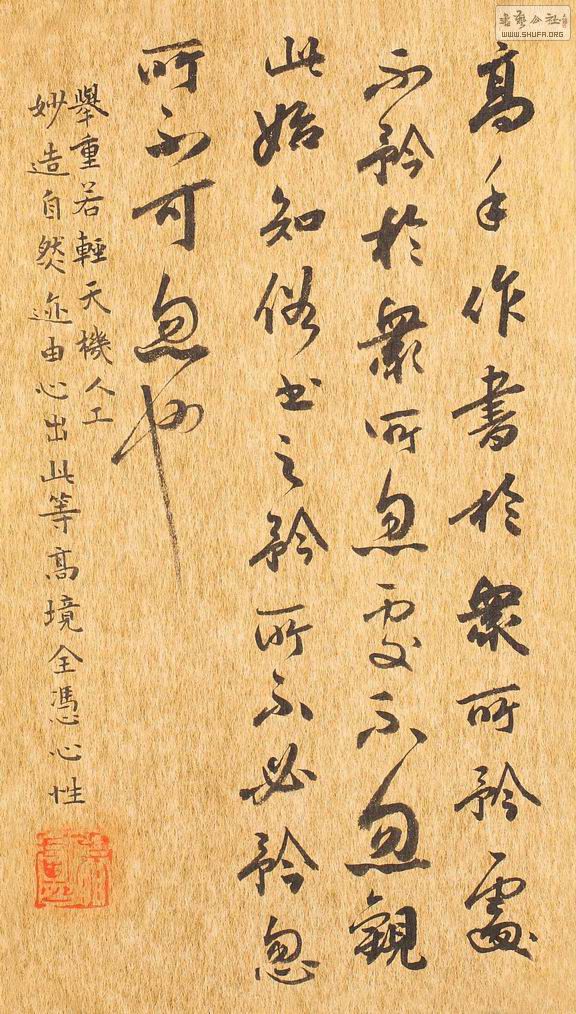 高手作書於衆所矜處
不矜於衆所忽處不忽觀
此始知俗書之矜所不必矜忽
所不可忽也
舉重若輕天機人工
妙造自然迹由心出此等高境全憑心性
書藝公社
WWW.SHUFA.ORG